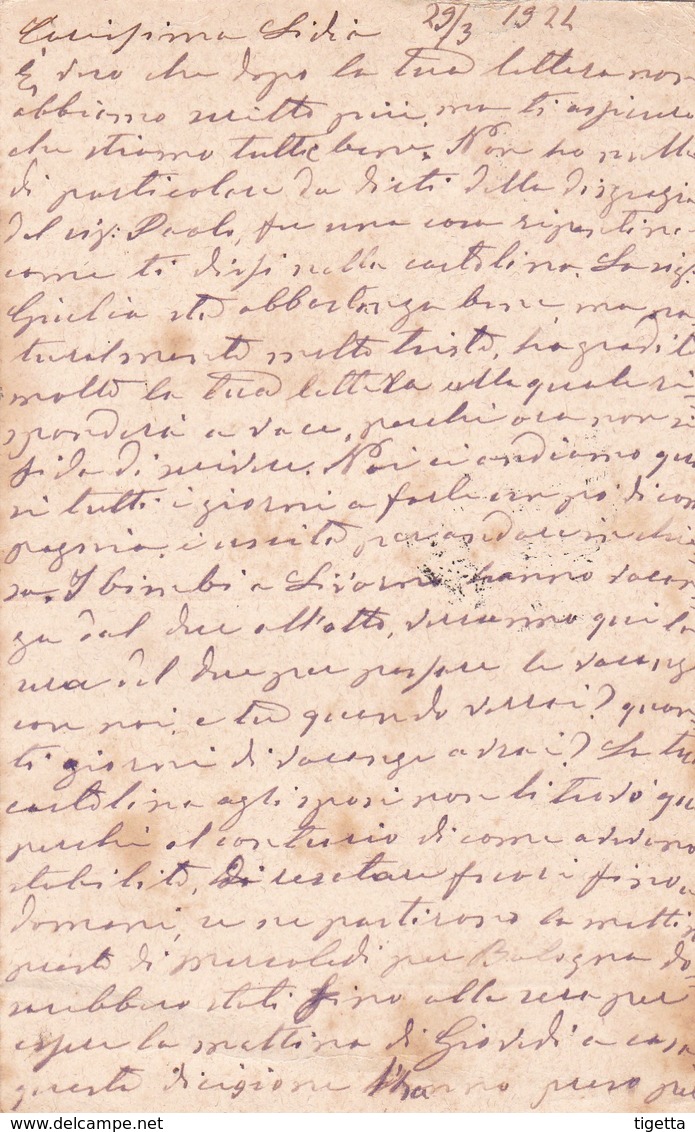 Carissima Lidia 29/3 1921
È vero che dopo la tua lettera non
abbiamo scritto più, ma ti assicuro
che stiamo tutti bene. Non ho nulla
di particolare da dirti della disgrazia
del sig: Paolo, fu una cosa repentina
come ti dissi nella cartolina. La sig:
Giulia sta abbastanza bene, ma na
turalmente molto triste, ha gradito
molto la tua lettera alla quale ri
sponderà a voce, perchè ora non si
fida di scrivere. Noi ci andiamo qua
si tutti i giorni a farle un pò di com
pagnia, è uscita per andare in chie
sa. I bimbi a Livorno hanno vacan
za dal due all'otto, verranno qui la
sera del due per passare le vacanze
con noi, e tu quando verrai? quan
ti giorni di vacanze avrai? La tua
cartolina agli sposi non li trovò qui
perchè al contrario di come avevano
stabilito, di restare fuori fino a
domani, se ne partirono la mattina
presto di mercoledì per Bologna do
sarebbero stati fino alla sera per
esser la mattina di Giovedì a casa
questa decisione l'hanno preso per
tigetta